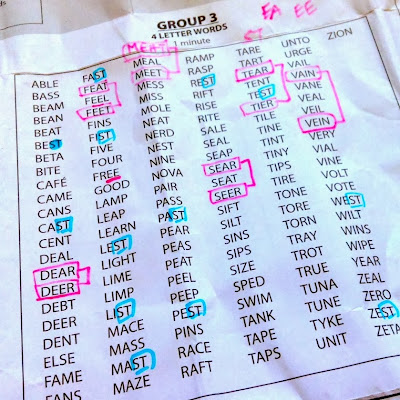 GROUP 3
4 LETTER WORDS
1 minute
EA EE
ST
MEAT
ABLE
BASS
BEAM
BEAN
BEAT
BEST
BETA
BITE
CAFÉ
CAME
CANS
CAST
CENT
DEAL
DEAR
DEER
DEBT
DEER
DENT
ELSE
FAME
FANS
FAST
FEAT
FEEL
FEET
FINS
FIST
FIVE
FOUR
FREE
GOOD
LAMP
LEAP
LEARN
LEST
LIGHT
LIME
LIMP
LIST
MACE
MASS
MAST
MAZE
MEAL
MEET
MESS
MISS
MOLE
NEAT
NERD
NEST
NINE
NOVA
PAIR
PASS
PAST
PEAR
PEAS
PEAT
PEEL
PEEP
PEST
PINS
RACE
RAFT
RAMP
RASP
REST
RIFT
RISE
RITE
SALE
SEAL
SEAP
SEAR
SEAT
SEER
SIFT
SILT
SINS
SIPS
SIZE
SPED
SWIM
TANK
TAPE
TAPS
TARE
TART
TEAR
TENT
TEST
TIER
TILE
TINE
TINT
TINY
TIPS
TIRE
TONE
TORE
TORN
TRAY
TROT
TRUE
TUNA
TUNE
TYKE
UNIT
UNTO
URGE
VAIL
VAIN
VANE
VEAL
VEIL
VEIN
VERY
VIAL
VINE
VOLT
VOTE
WEST
WILT
WINS
WIPE
YEAR
ZEAL
ZERO
ZEST
ZETA
ZION